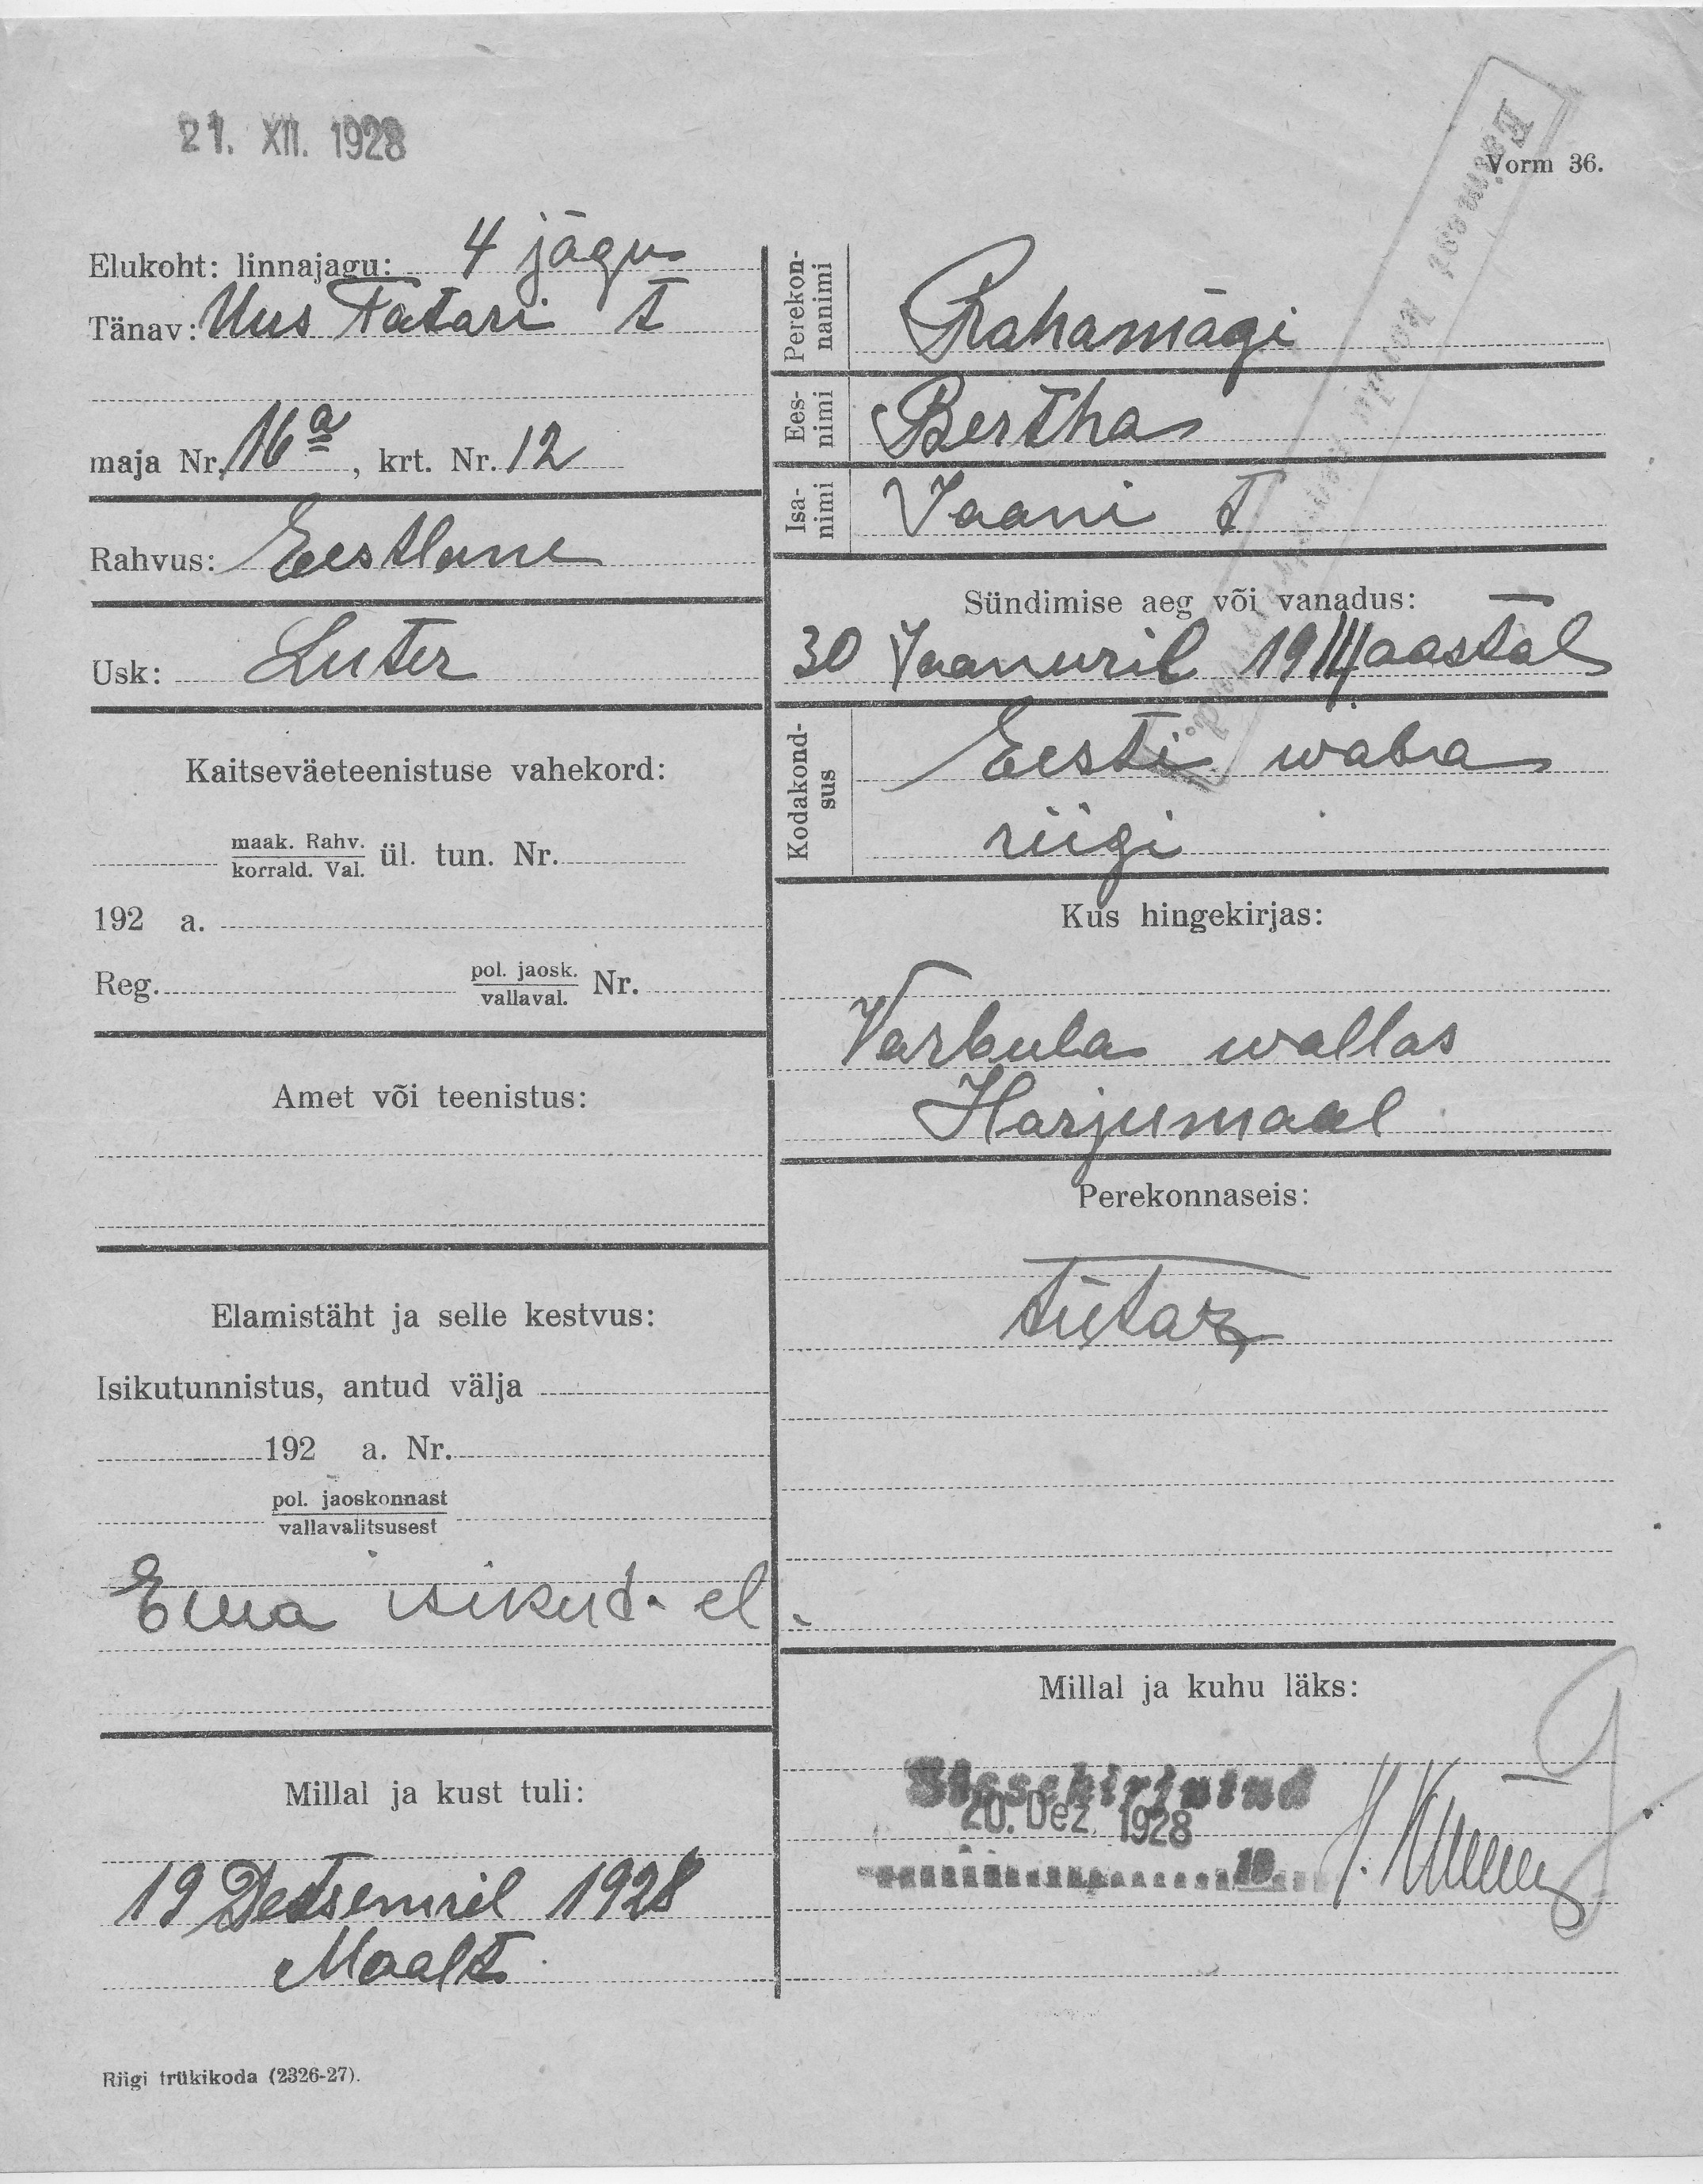 21. XII. 1928
Vorm 36.
Elukoht: linnajagu: 4 jägu
Tänav: Uus Tatari t
maja Nr. 16ª, krt. Nr. 12
Rahvus: Eestlane
Usk: Luter
Kaitseväeteenistuse vahekord:
maak. Rahv.
korrald. Val. ül. tun. Nr.
192 a.
Reg. pol. jaosk.
vallaval. Nr.
Amet või teenistus:
Elamistäht ja selle kestvus:
Isikutunnistus, antud välja
192 a. Nr.
pol. jaoskonnast
vallavalitsusest
Ema isikud. el.
Millal ja kust tuli:
19 Detsemril 1928
Maalt
Perekon-
nanimi Rahamägi
Ees-
nimi Bertha
Isa-
nimi Jaani t
Sündimise aeg või vanadus:
30 Jaanuril 1914 aastal
Kodakond-
sus Eesti waba
riigi
Kus hingekirjas:
Varbula wallas
Harjumaal
Perekonnaseis:
tütar
Millal ja kuhu läks:
Sissekirjutud
20. Dez. 1928
19
Riigi trükikoda (2326-27).